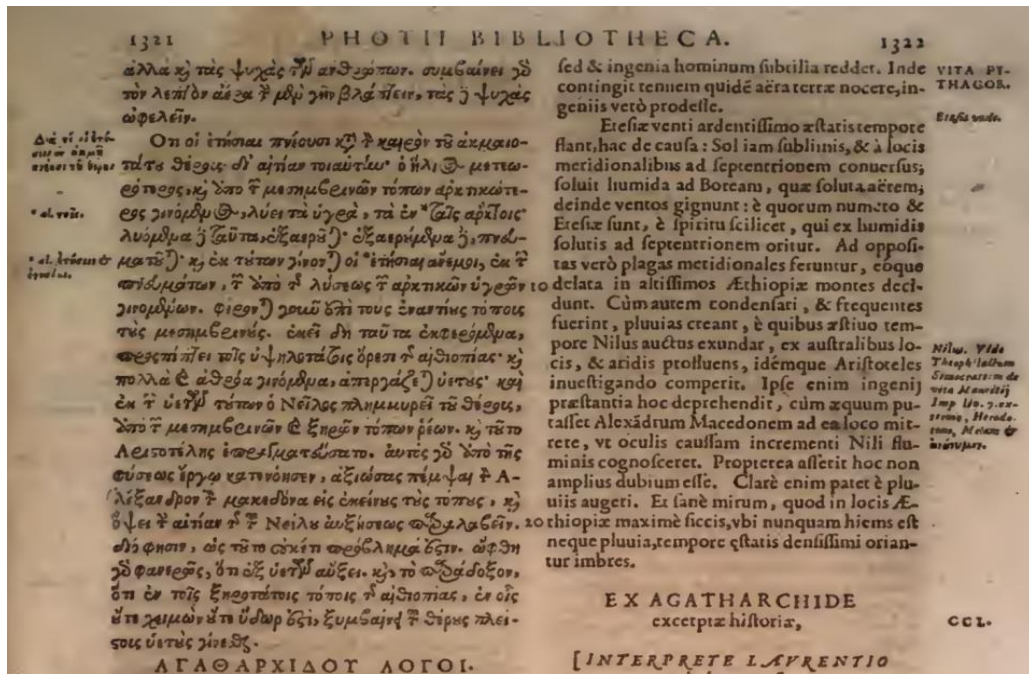 1321 PHOTII BIBLIOTHECA. 1322
ἀλλὰ κὶ τὰς ψυχὰς τῶν ἀνθρώπων. συμβαίνει γὸ
τὸν λεπτὸν ἀέρα τ μὲν γῆν βλάπτειν, τὰς δὲ ψυχὰς
ὠφελεῖν.
Ὅτι οἱ ἐτήσιαι πνέουσι κτ τ καιρὸν τοῦ ἀκμαιο-
τάτου θέρους δι' αἰτίαν τοιαύτην· ὁ ἥλιος μετεω-
ρότερος, κὶ ὑπὸ τ μεσημβρινῶν τόπων ἀρκτικώτε-
ρος γινόμενος, λύει τὰ ὑγρὰ, τὰ ἐν *ταῖς ἄρκτοις·
λυόμενα δὲ ταῦτα, ἐξαεροῦται· ἐξαερούμενα δὲ, πνευ-
ματοῦται· κὶ ἐκ τούτων γίνονται οἱ *ἐτήσιαι ἄνεμοι, ἐκ τ
πνευμάτων, τ ὑπὸ τ λύσεως τ ἀρκτικῶν ὑγρῶν 10
γινομένων. φέρονται γοῦν ἐπὶ τοὺς ἐναντίους τόπους
τοὺς μεσημβρινούς. ἐκεῖ δὴ ταῦτα ἐκφερόμενα,
προσπίπτει τοῖς ὑψηλοτάτοις ὄρεσι τ αἰθιοπίας· κὶ
πολλὰ καὶ ἀθρόα γινόμενα, ἀπεργάζεται ὑετούς· καὶ
ἐκ τ ὑετῶν τούτων ὁ Νεῖλος πλημμυρεῖ τοῦ θέρους,
ἀπὸ τ μεσημβρινῶν καὶ ξηρῶν τόπων ῥέων. κὶ τοῦτο
Ἀριστοτέλης ἐπραγματεύσατο. αὐτὸς γὸ ἀπὸ τῆς
φύσεως ἔργῳ κατενόησεν, ἀξιώσας πέμψαι τ Ἀ-
λέξανδρον τ μακεδόνα εἰς ἐκείνους τοὺς τόπους, κὶ
ὄψει τ αἰτίαν τ τ Νείλου αὐξήσεως παραλαβεῖν. 20
διό φησιν, ὡς τοῦτο οὐκέτι πρόβλημά ἐστιν. ὤφθη
γὸ φανερῶς, ὅτι ἐξ ὑετῶν αὔξει. κὶ, τὸ παράδοξον,
ὅτι ἐν τοῖς ξηροτάτοις τόποις τ αἰθιοπίας, ἐν οἷς
οὔτε χειμὼν οὔτε ὕδωρ ἐστὶ, ξυμβαίνει τ θέρους πλεί-
στους ὑετοὺς γίνεσθαι.
ΑΓΑΘΑΡΧΙΔΟΥ ΛΟΓΟΙ.
* al. τοῖς.
sed & ingenia hominum subtilia reddet. Inde
contingit tenuem quidẽ aëra terræ nocere, in-
geniis verò prodesse.
Etesiæ venti ardentissimo æstatis tempore
flant, hac de causa: Sol iam sublimis, & à locis
meridionalibus ad septentrionem conuersus,
soluit humida ad Boream, quæ soluta aërem,
deinde ventos gignunt: è quorum numero &
Etesiæ sunt, è spiritu scilicet, qui ex humidis
solutis ad septentrionem oritur. Ad opposi-
tas verò plagas meridionales feruntur, eóque
delata in altissimos Æthiopiæ montes deci-
dunt. Cùm autem condensati, & frequentes
fuerint, pluuias creant, è quibus æstiuo tem-
pore Nilus auctus exundat, ex australibus lo-
cis, & aridis profluens, idémque Aristoteles
inuestigando comperit. Ipse enim ingenij
præstantia hoc deprehendit, cùm æquum pu-
tasset Alexãdrum Macedonem ad ea loco mit-
tere, vt oculis caussam incrementi Nili flu-
minis cognosceret. Propterea asserit hoc non
amplius dubium esse. Clarè enim patet è plu-
uiis augeri. Et sanè mirum, quod in locis Æ-
thiopiæ maximè siccis, vbi nunquam hiems est
neque pluuia, tempore ęstatis densissimi orian-
tur imbres.
EX AGATHARCHIDE
excerptæ historiæ,
[INTERPRETE LAVRENTIO
VITA PY-
THAGOR.
Etesiæ vnde.
Nilus. Vide
Theophilactum
Simocratem de
vita Mauritij
Imp lib. 7. ex-
tremo, Herodo-
tum, Melam &
CCL.